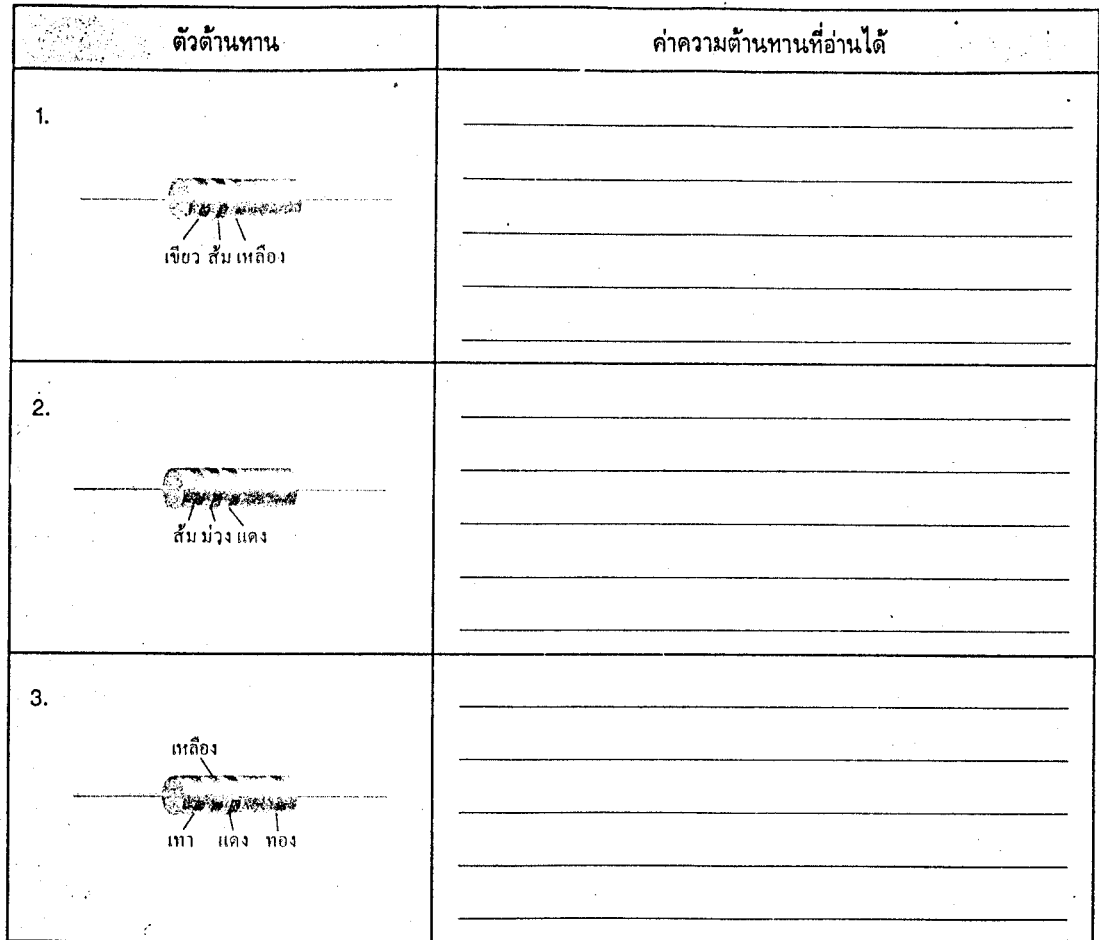 ตัวต้านทาน
ค่าความต้านทานที่อ่านได้
1.
เขียว ส้ม เหลือง
2.
ส้ม ม่วง แดง
3.
เหลือง
เทา แดง ทอง